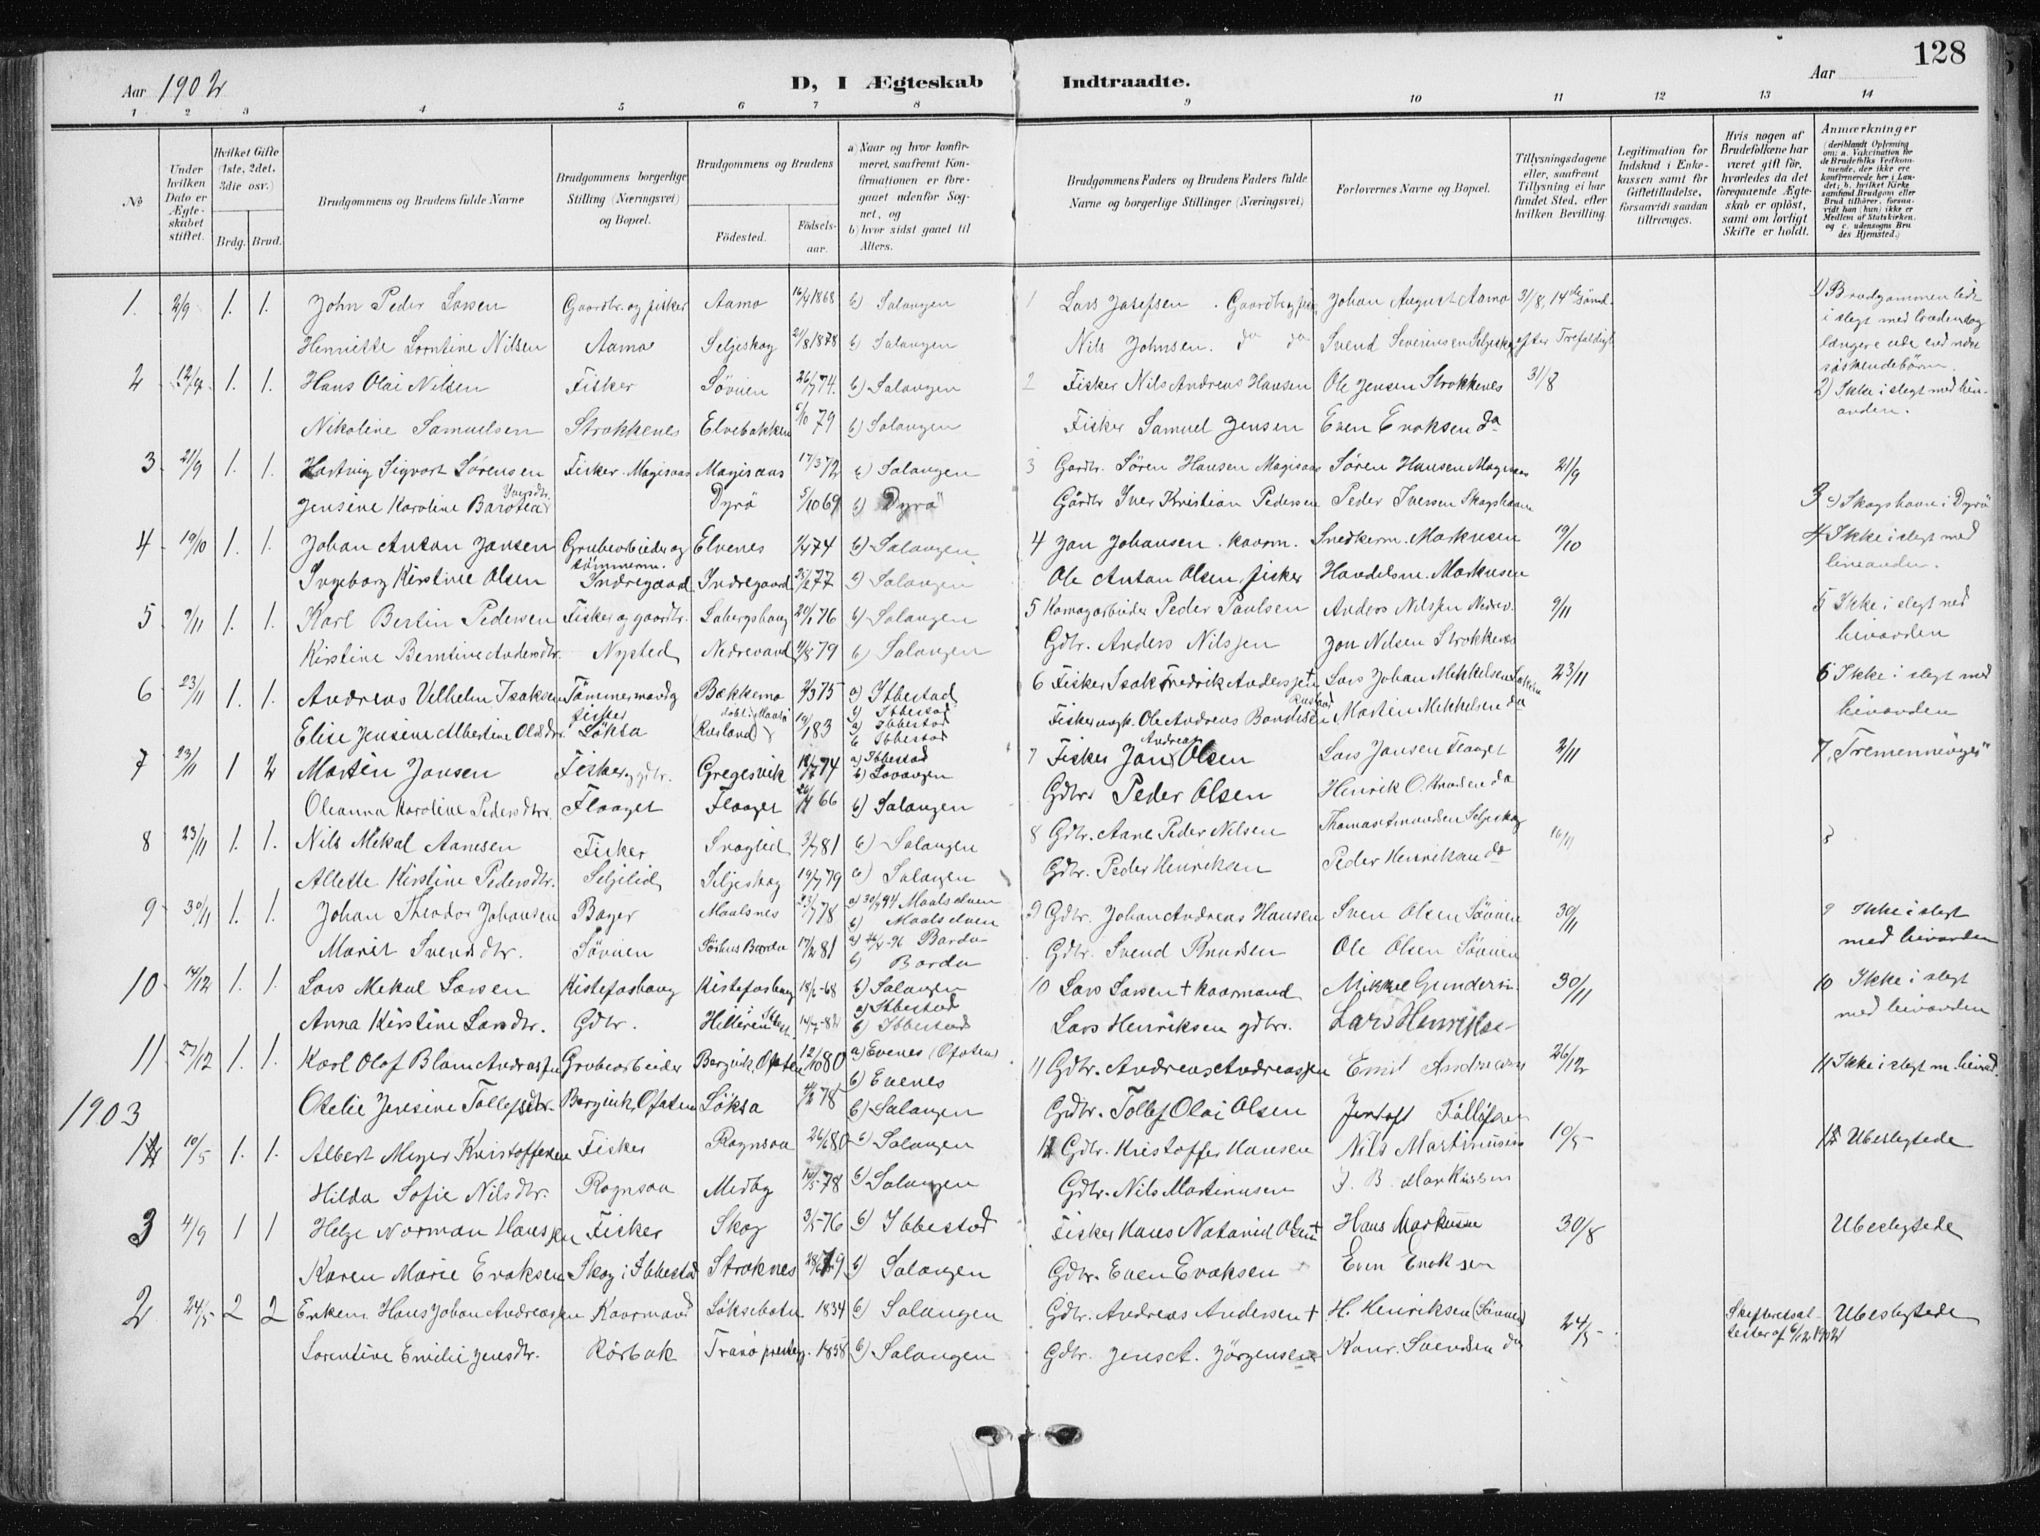 128
Aar 1902
D, I Ægteskab Indtraadte.
Aar
1 2 3 4 5 6 7 8 9 10 11 12 13 14
No
Under hvilken Dato er Ægteskabet stiftet.
Hvilket Gifte (1ste, 2det, 3die osv.)
Brdg. Brud.
Brudgommens og Brudens fulde Navne
Brudgommens borgerlige Stilling (Næringsvei) og Bopæl.
Brudgommens og Brudens
Fødested.
Fødselsaar.
a) Naar og hvor konfirmeret, saafremt Konfirmationen er foregaaet udenfor Sognet, og
b) hvor sidst gaaet til Alters.
Brudgommens Faders og Brudens Faders fulde Navne og borgerlige Stillinger (Næringsvei)
Forlovernes Navne og Bopæl.
Tillysningsdagene eller, saafremt Tillysning ei har fundet Sted, efter hvilken Bevilling.
Legitimation for Indskud i Enkekassen samt for Giftetilladelse, forsaavidt saadan tiltrænges.
Hvis nogen af Brudefolkene har været gift før, hvorledes da det foregaaende Ægteskab er opløst, samt om lovligt Skifte er holdt.
Anmærkninger
1. 2/9 1. 1. John Peder Larsen Gaardbr. og fisker Aamo 16/4 1868 b) Salangen 1 Lars Josefsen . Johan August Aamo 31/8, 14de
Henriette Lorntine Nilsen Aamo Seljeskog 21/8 1878 b) Salangen Nils Johnsen. do do Svend Severinsen Seljeskog efter Trefoldigh
1) Brudgommen
i slegt med
længere ude end
søskendebørn.
2 12/9 1. 1. Hans Olai Nilsen Fisker Søvien 26/7 74. b) Salangen 2 Fisker Nils Andreas Hansen Ole Jensen Strokkenes 31/8 2) Ikke i slegt med hinanden.
Nikoline Samuelsen Strokkenes Elvebakken 5/10 79 b) Salangen Fisker Samuel Jensen Even Enoksen do
3 21/9 1. 1. Hartvig Sigvart Sørensen Fisker. Magisaas Magisaas 17/3 72 b) Salangen 3 Gardbr. Søren Hansen Magisaas Søren Hansen 21/9
Jensine Karoline Dyrø 5/10 69 b) Dyrø Gårdbr Iver Kristian Pedersen Peder Iversen Skogshavn 3 c) Skogshavn i Dyrø
4 19/10 1. 1. Johan Anton Jansen Grubearbieder og Elvenes 74 b) Salangen 4 Jan Johansen . kaarm. Snedkerm. Markusen 19/10 4 Ikke i slegt med hinanden.
Ingeborg Kirstine Olsen Indregaard Indregaard 77 Salangen Ole Anton Olsen, fisker Handelsm. Markusen
5 9/11 1. 1. Karl Bertin Pedersen Fisker og gaardbr. Labergshaug 20/1 76 b) Salangen 5 Peder Paulsen Anders Nilsen 9/11 5 Ikke i slegt med hinanden
Kirstine Berntine Andersdtr. Nysted Nedrevand 79 b) Salangen Gdbr. Anders Nilsen Jon Nilsen Strokkenes
6 23/11 1. 1. Andreas Vilhelm Isaksen Tømmermand og fisker Bakkemo 75 a) Ibbestad b) Ibbestad 6 Fisker Isak Fredrik Andersen † Lars Johan Mikkelsen 23/11 6 Ikke i slegt med hinanden
Elise Jensine Albertine Løksa (Rusland) 83 a) Ibbestad b Ibbestad Ole Andreas Martin Mikkelsen do
7 23/11 1 2 Martin Jansen Fisker og gdbr. Gregesvik 74 a) Ibbestad b) Lavangen 7 Fisker Jan Andreas Olsen Lars Jansen Flaaget 2/11 7, "Tremenninger"
Oleanna Karoline Pedersdtr. Flaaget Flaaget 66 b) Salangen Gdbr. Peder Olsen Henrik O. Knudsen do
8 23/11 1. 1. Nils Mikal Aanesen Fisker 81 b) Salangen 8 Gdbr. Aane Peder Nilsen Thomas Amundsen Seljeskog 16/11 8
Alette Kirstine Pedersdtr. Seljelid Seljeskog 19/7 79 Salangen Gdbr. Peder Henriksen Peder Henriksen do
9 30/11 1. 1. Johan Theodor Johansen Bager Maalsnes 23/7 78 a) Maalselven b) Maalselven 9 Gdbr. Johan Andreas Hansen Sven Olsen Søvien 30/11 9 Ikke i slegt med hinanden
Marit Svendsdtr. Søvien Bardu 17/2 81 a) Bardu b) Bardu Gdbr. Svend Knudsen Ole Olsen Søvien
10 14/12 1. 1. Lars Mekal Larsen Kistefoshaug Kistefoshaug 68 b) Salangen 10 Lars Larsen † kaarmand Mikkel Gundersen 30/11 10 Ikke i slegt med hinanden
Anna Kirstine Larsdtr. Gdbr. 82 a) Ibbestad b) Ibbestad Lars Henriksen gdbr. Lars Henriksen
11 27/12 1. 1. Karl Olaf Blam Andreassen Grubearbieder Bergvik, Ofoten 12/10 80 a) Evenes (Ofoten) b) Evenes 11 Gdbr. Andreas Andreassen Emil Andreassen 26/12 11 Ikke i slegt m. hinand.
Otelie Jensine Tollefsdtr. Bergvik, Ofoten Løksa 78 b) Salangen Gdbr. Tollef Olai Olsen Jentoft Tollefsen
1903
1 10/5 1. 1. Albert Meyer Kristoffersen Fisker Rognsaa 26/1 80 b) Salangen 1 Gdbr. Kristoffer Hansen Nils Martinussen 10/5 1 Ubeslegtede
Hilda Sofie Nilsdtr. Rognsaa Medby 78 b) Salangen Gdbr. Nils Martinusen J. B. Markussen
3 4/9 1 1 Helge Norman Hansen Fisker Skog 76 b) Ibbestad Fisker Hans Natanial Olsen † Hans Markusen 30/8 Ubeslegtede
Karen Marie Enoksen Skog i Ibbestad Stroknes 79 b) Salangen Gdbr. Even Enoksen Even Enoksen
2 24/5 2 2 Enkem. Hans Johan Andreassen Kaarmand Løksebotn 1834 b) Salangen Gdbr. Andreas Andersen † H. Henriksen (Søvien) 24/5 Skifteretsattester af 6/12 1902 Ubeslegtede
Lorentine Emilie Jensdtr. Rørbak 1858 b) Salangen Gdbr. Jens A. Jørgensen Konr. Svendsen do